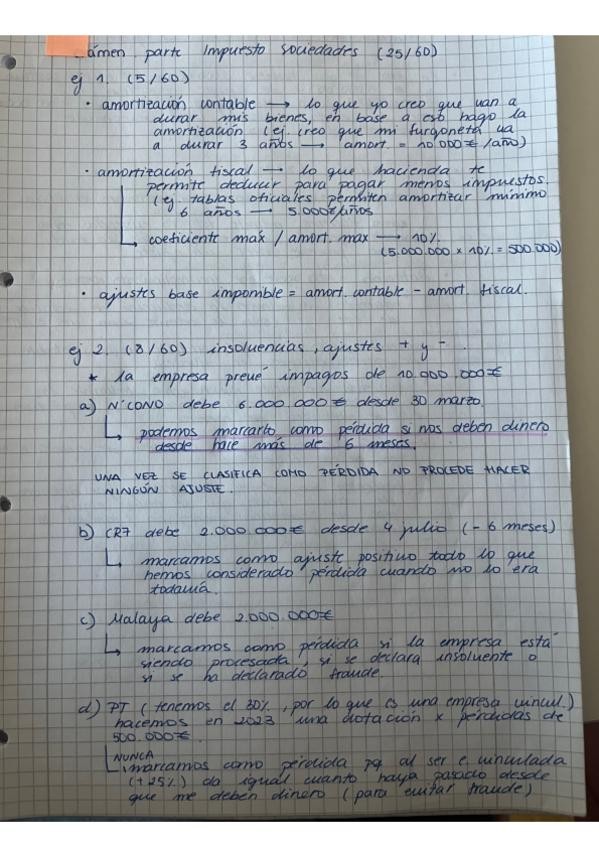 ámen parte Impuesto sociedades (25/60)
ej 1. (5/60)
• amortización contable → lo que yo creo que van a
durar mis bienes, en base a eso hago la
amortización (ej. creo que mi furgoneta va
a durar 3 años → amort. = 10.000€/año)
• amortización fiscal → lo que hacienda te
permite deducir para pagar menos impuestos.
(ej. tablas oficiales permiten amortizar mínimo
6 años → 5.000€/años
↳ coeficiente máx / amort. max → 10%
(5.000.000 x 10% = 500.000)
• ajustes base imponible = amort. contable - amort. fiscal.
ej 2. (8/60) insolvencias, ajustes + y - .
* la empresa prevé impagos de 10.000.000€
a) N'CONO debe 6.000.000€ desde 30 marzo.
↳ podemos marcarlo como pérdida si nos deben dinero
desde hace más de 6 meses.
UNA VEZ SE CLASIFICA COMO PÉRDIDA NO PROCEDE HACER
NINGÚN AJUSTE.
b) CR7 debe 2.000.000€ desde 4 julio (- 6 meses)
↳ marcamos como ajuste positivo todo lo que
hemos considerado pérdida cuando no lo era
todavía.
c) Malaya debe 2.000.000€
↳ marcamos como pérdida si la empresa está
siendo procesada, si se declara insolvente o
si se ha declarado fraude.
d) PT (tenemos el 30%, por lo que es una empresa vincul.)
hacemos en 2023 una dotación x pérdidas de
500.000€.
NUNCA
↳ marcamos como pérdida pq al ser e. vinculada
(+25%) da igual cuanto haya pasado desde
que me deben dinero (para evitar fraude)